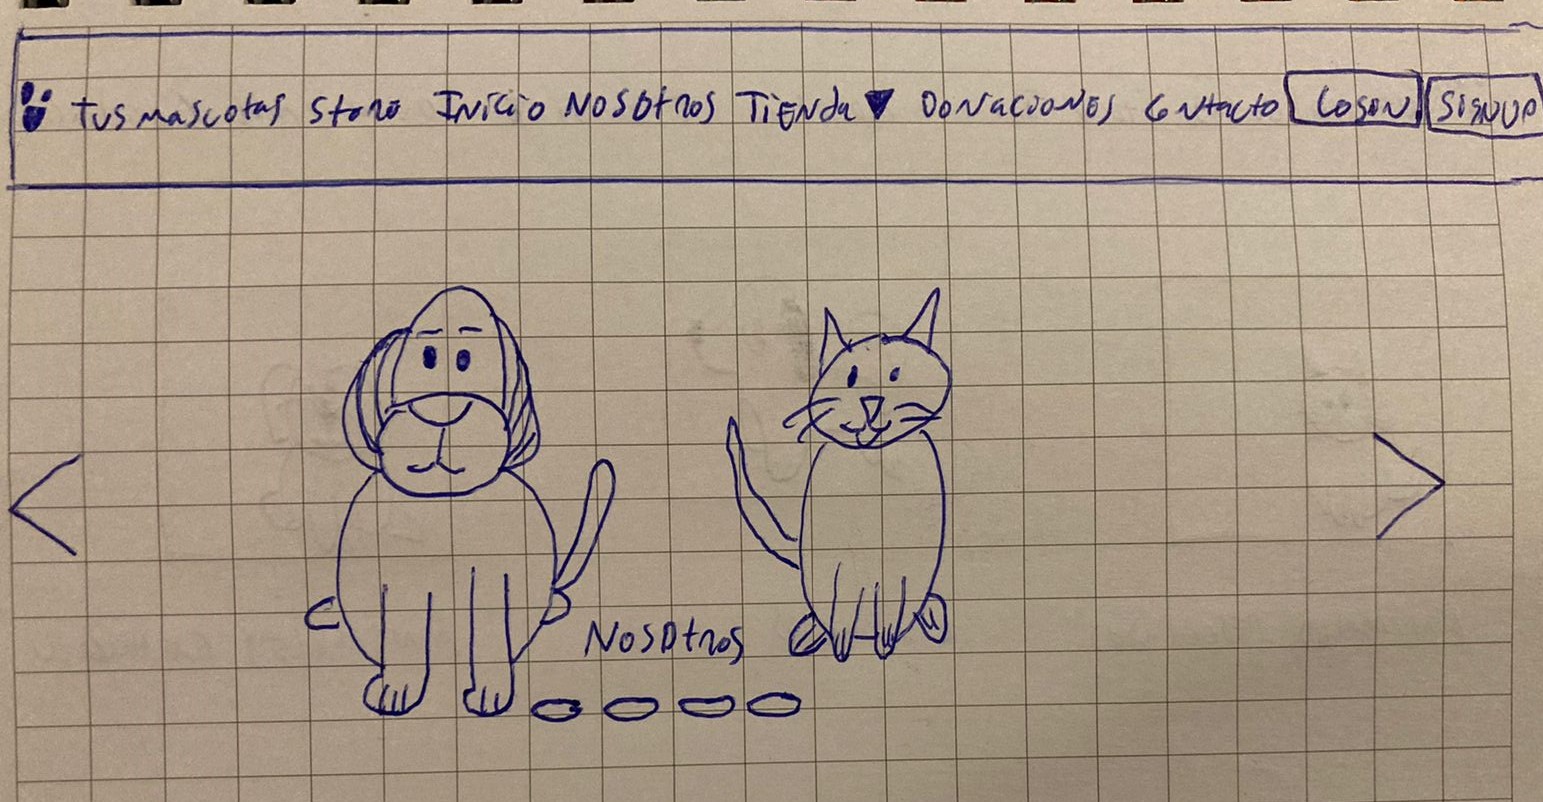 Tus mascotas Store Inicio Nosotros Tienda ▼ Donaciones Contacto LOGIN SIGNUP
Nosotros